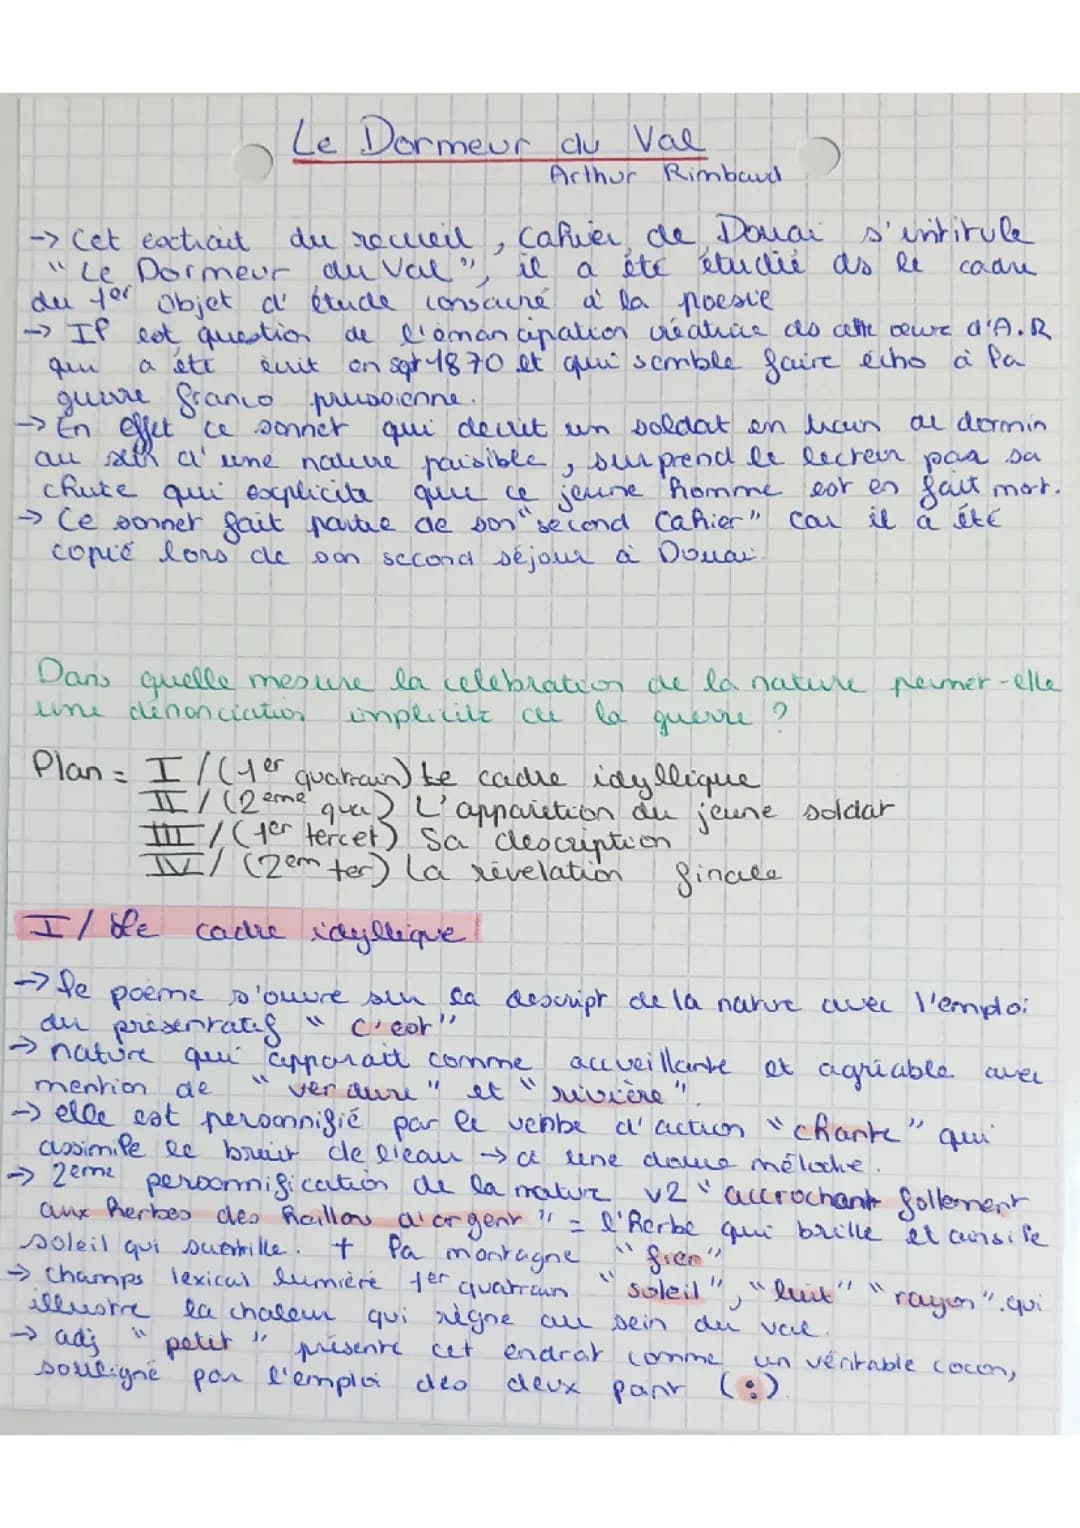 Le Dormeur du Val
Arthur Rimbaud
-> Cet extrait du recueil, Cahier de Douai s'intitule
"Le Dormeur du Val", il a été étudié ds le cadre
du 1er objet d'étude consacré à la poesie
-> Il est question de l'émancipation créatrice ds cette œuvre d'A.R
qui a été écrit en sept 1870 et qui semble faire écho à la
guerre franco prussienne.
-> En effet ce sonnet qui decrit un soldat en train de dormir
au sein d'une nature paisible, surprend le lecteur par sa
chute qui explicite que ce jeune homme est en fait mort.
-> Ce sonnet fait partie de son "second Cahier" car il a été
copié lors de son second séjour à Douai.
Dans quelle mesure la celebration de la nature permet-elle
une dénonciation implicite de la guerre ?
Plan = I/(1er quatrain) Le cadre idyllique
II/(2ème qua) L'apparition du jeune soldat
III/(1er tercet) Sa description
IV/(2em ter) La révelation finale
I/ Le cadre idyllique
-> le poème s'ouvre sur la descript de la nature avec l'emploi
du présentatif "c'est"
-> nature qui apparait comme accueillante et agréable avec
mention de "verdure" et "rivière".
-> elle est personnifié par le verbe d'action "chante" qui
assimile le bruit de l'eau -> à une douce mélodie.
-> 2eme personnification de la natur v2 "accrochant follement
aux herbes des haillons d'argent" = l'herbe qui brille et ainsi le
soleil qui scintille. + la montagne "fier"
-> champs lexical lumière 1er quatrain "soleil", "luit" "rayon". qui
illustre la chaleur qui règne au sein du val.
-> adj "petit" présente cet endroit comme un véritable cocon,
souligné par l'emploi des deux point (:).